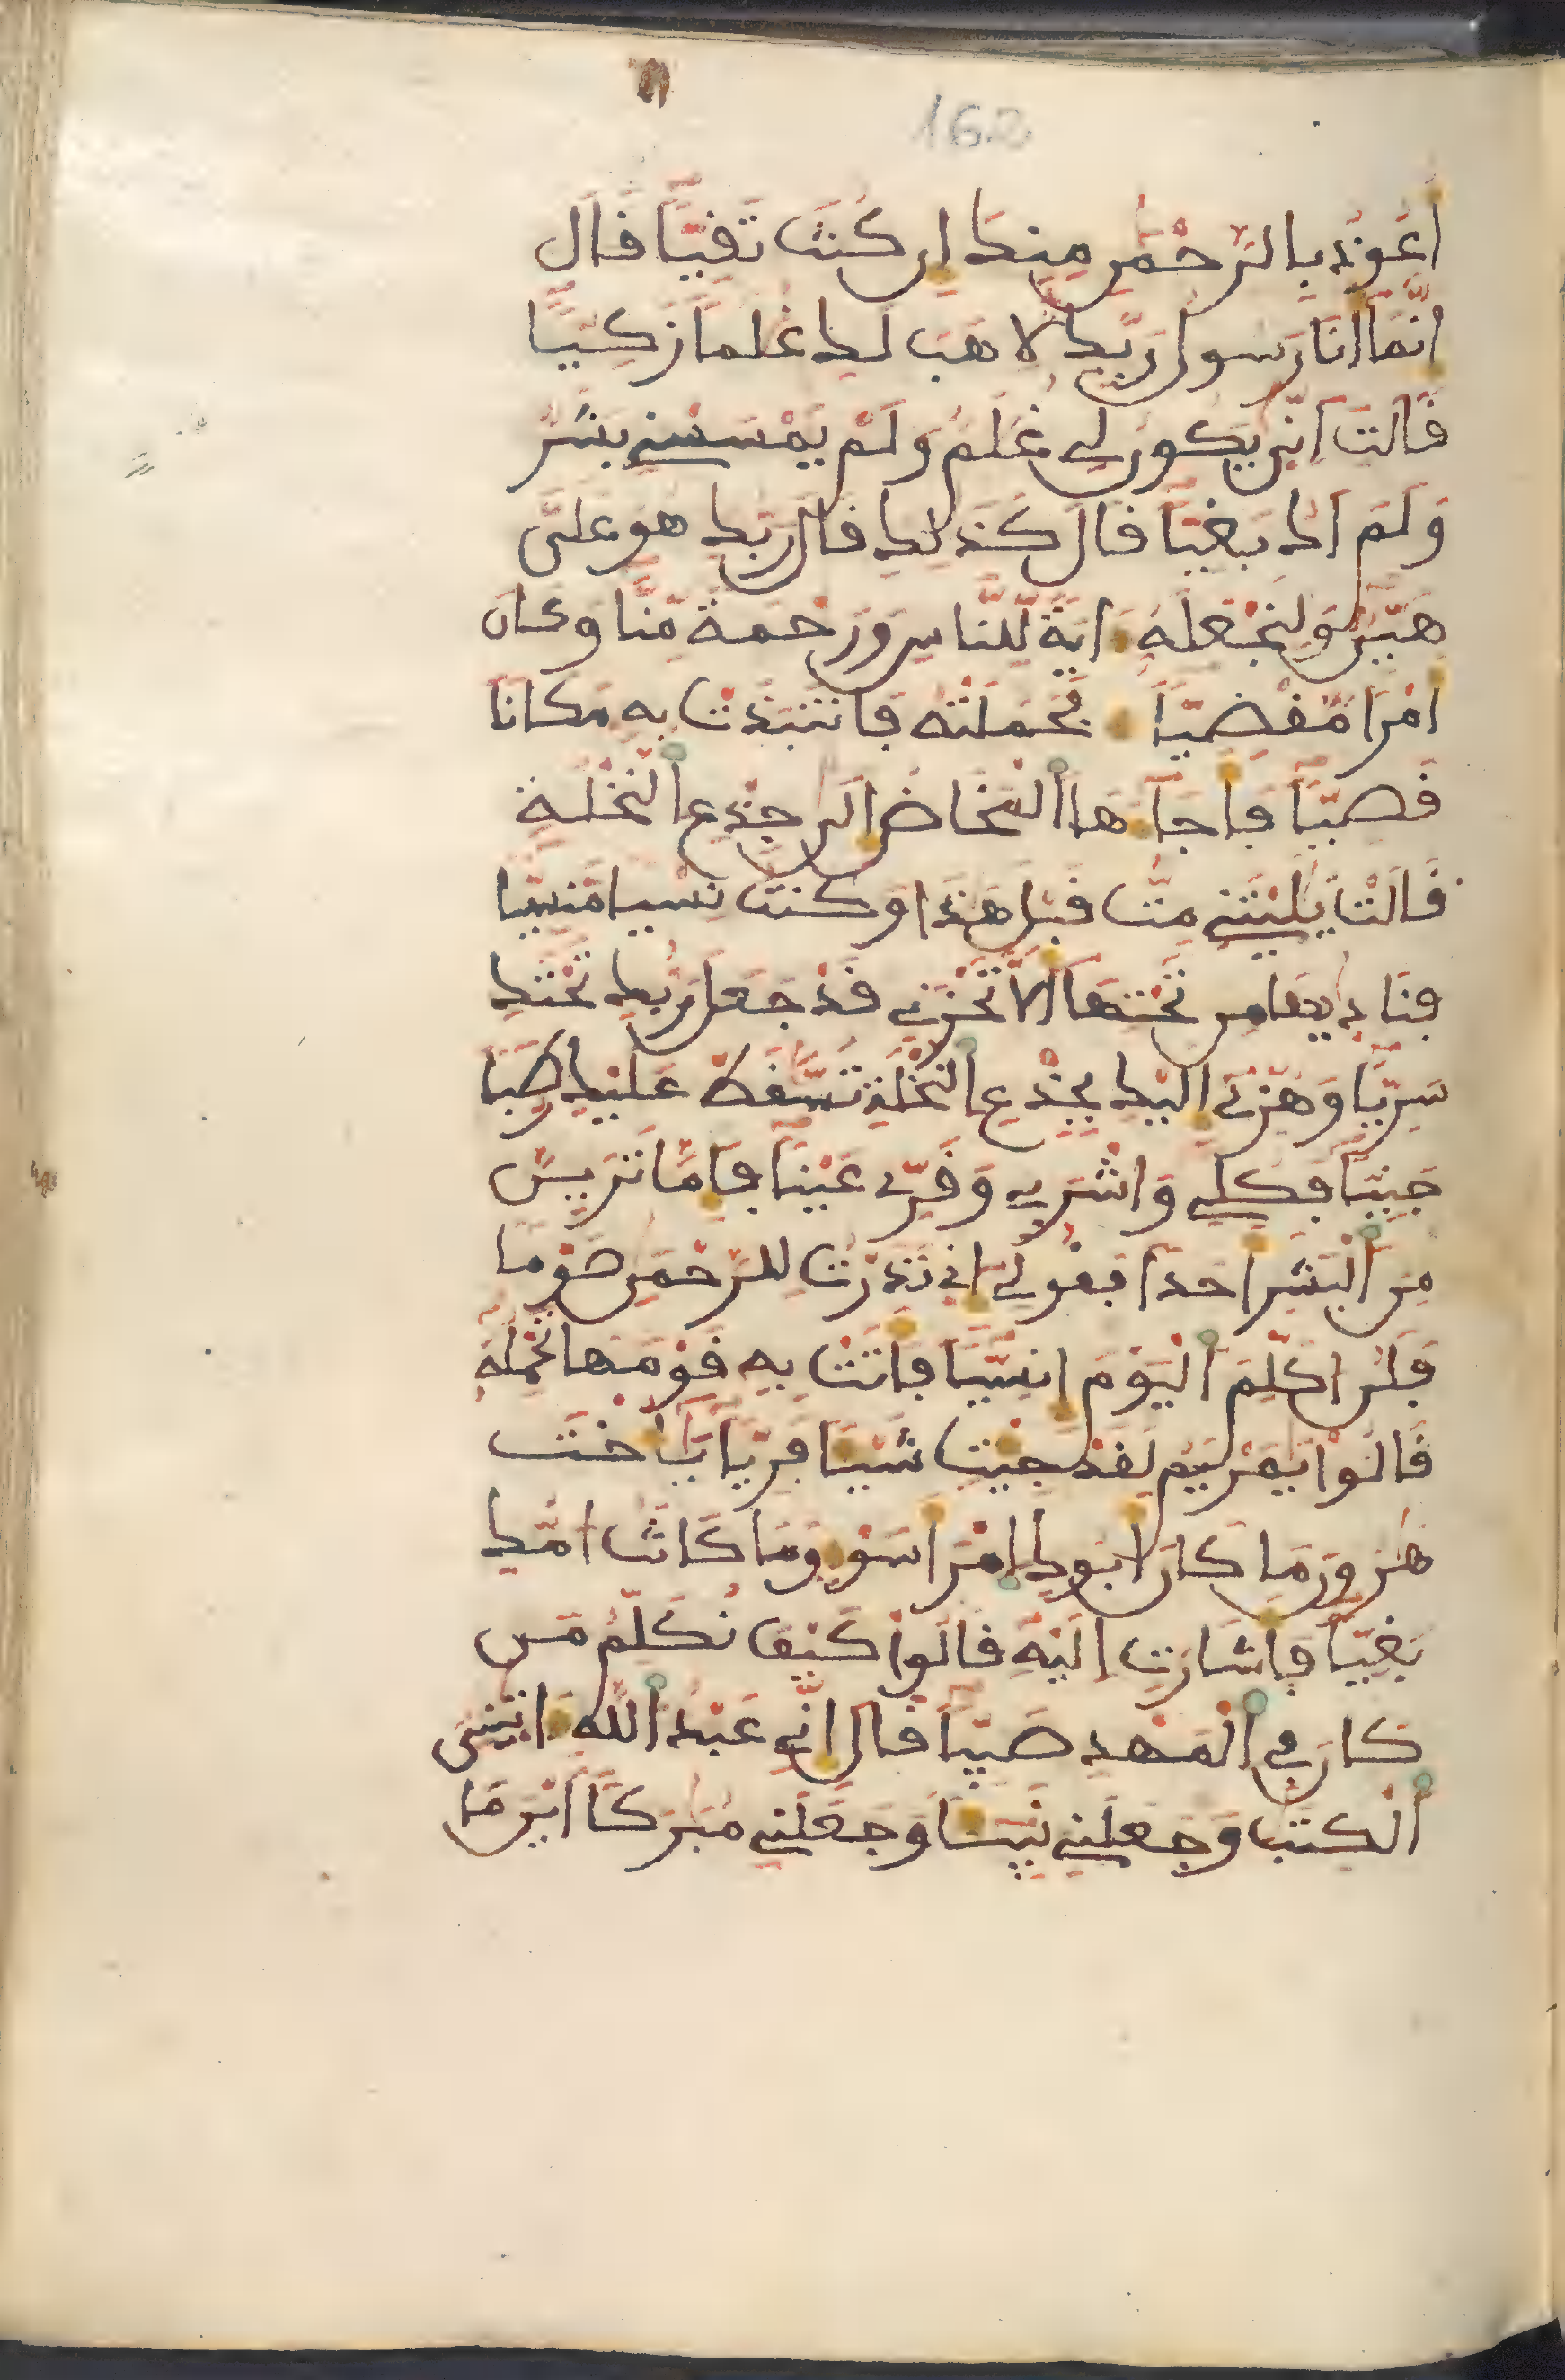 162
اعوذ بالرحمن منك ان كنت تقيا قال
انما انا رسول ربك لاهب لك غلما زكيا
قالت انى يكون لي غلم ولم يمسسني بشر
ولم اك بغيا قال كذلك قال ربك هو على
هين ولنجعله اية للناس ورحمة منا وكان
امرا مقضيا فحملته فانتبذت به مكانا
قصيا فاجاها المخاض الى جذع النخلة
قالت يليتني مت قبل هذا وكنت نسيا منسيا
فناديها من تحتها الا تحزني قد جعل ربك تحتك
سريا وهزي اليك بجذع النخلة تسقط عليك رطبا
جنيا فكلي واشربي وقري عينا فاما ترين
من البشر احدا فقولي اني نذرت للرحمن صوما
فلن اكلم اليوم انسيا فاتت به قومها تحمله
قالوا يمريم لقد جيت شيا فريا ياخت
هرون ما كان ابوك امرا سو وما كانت امك
بغيا فاشارت اليه قالوا كيف نكلم من
كان في المهد صبيا قال اني عبد الله اتيني
الكتب وجعلني نبيا وجعلني مبركا اين ما